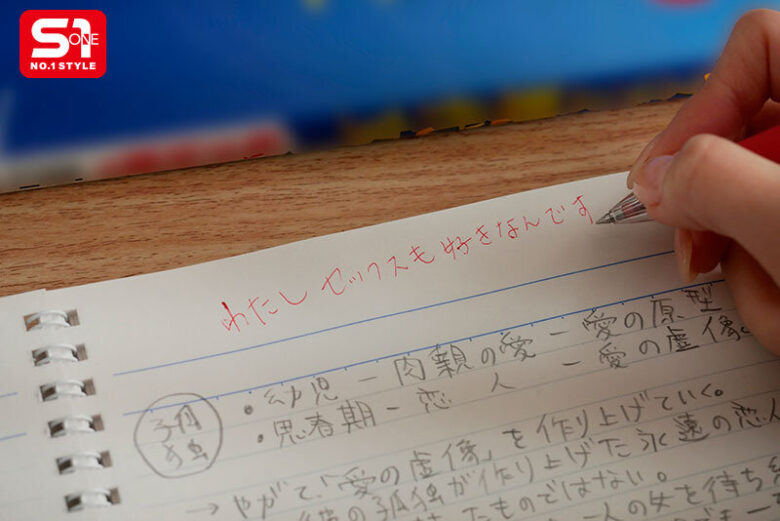 S1
ONE
NO.1 STYLE
わたしセックスも好きなんです
・幼児ー肉親の愛ー愛の原型
・思春期ー恋人ー愛の虚像。
孤独
→やがて、「愛の虚像」を作り上げていく。
の孤独が作り上げた永遠の恋人
たものではない。
一人の女を待ち続